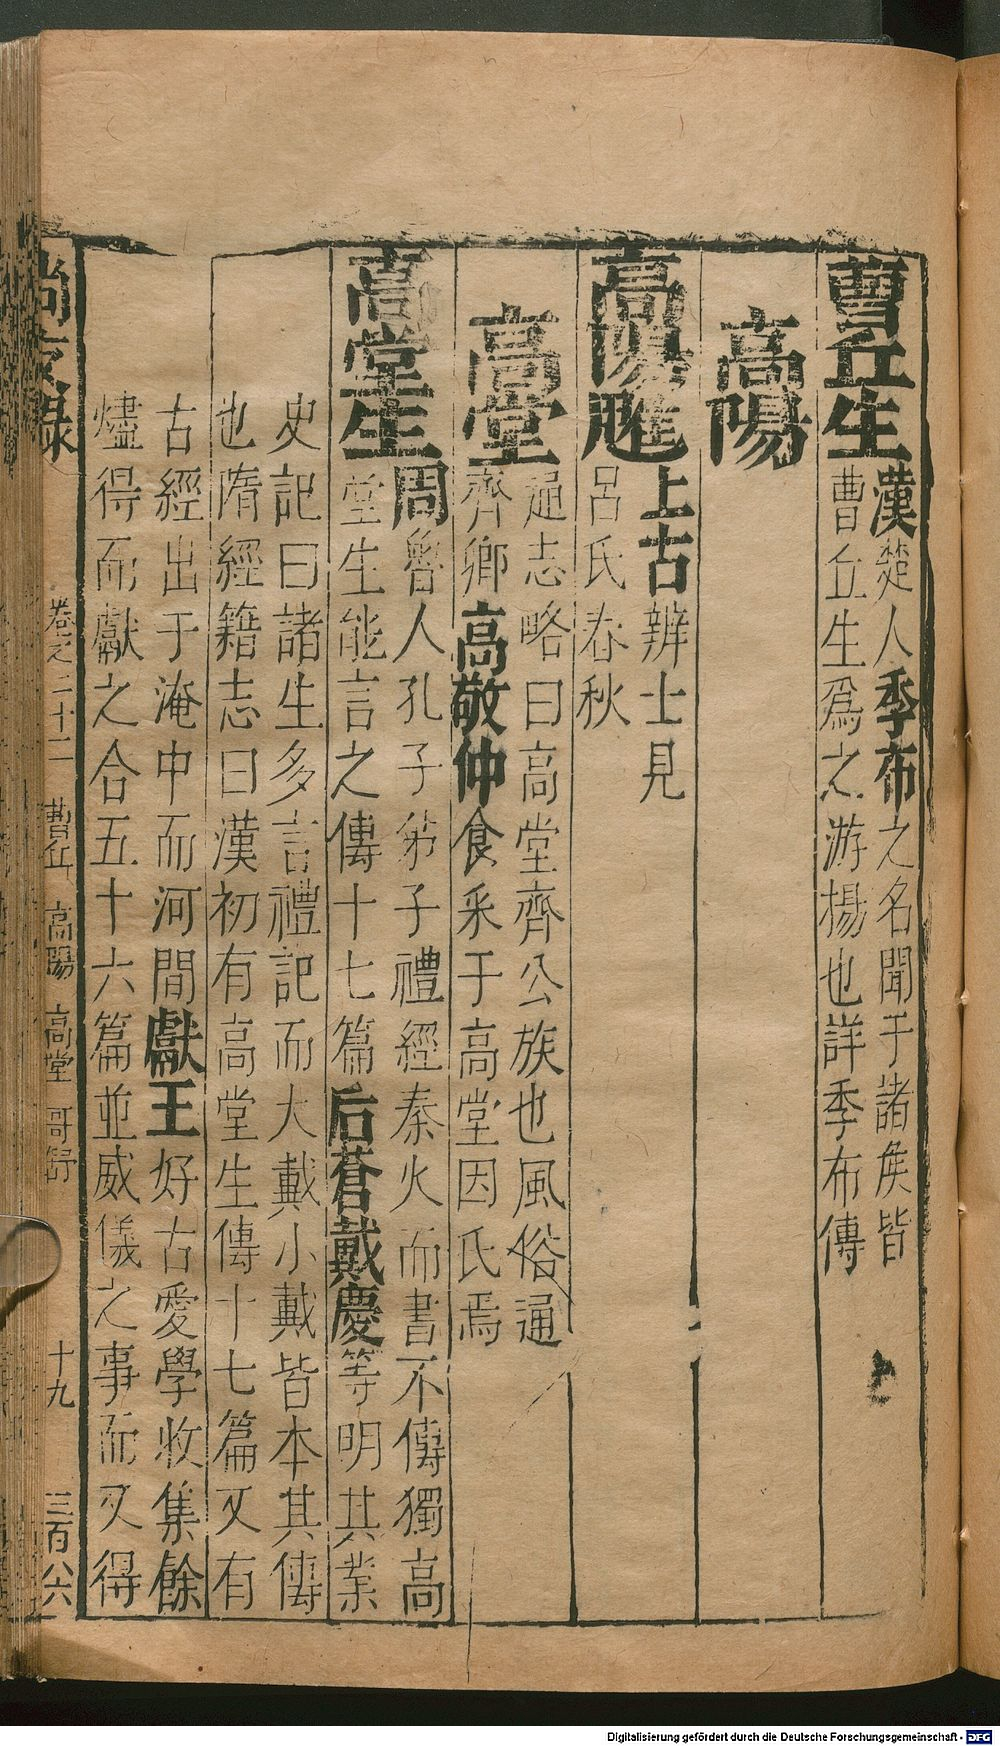 曹丘生
漢楚人季布之名聞于諸矦皆
曹丘生爲之游楊也詳季布傳
高陽
高陽魋
上古辨士見
呂氏春秋
高堂
通志略曰高堂齊公族也風俗通
齊卿高敬仲食采于高堂因氏焉
高堂生
周魯人孔子弟子禮經秦火而書不傳獨高
堂生能言之傳十七篇后蒼戴慶等明其業
史記曰諸生多言禮記而大戴小戴皆本其傳
也隋經籍志曰漢初有高堂生傳十七篇又有
古經出于淹中而河間獻王好古愛學收集餘
燼得而獻之合五十六篇並威儀之事而又得
尚友錄
卷之二十二 曹丘 高陽 高堂 哥舒
十九
三百八六
Digitalisierung gefördert durch die Deutsche Forschungsgemeinschaft - DFG